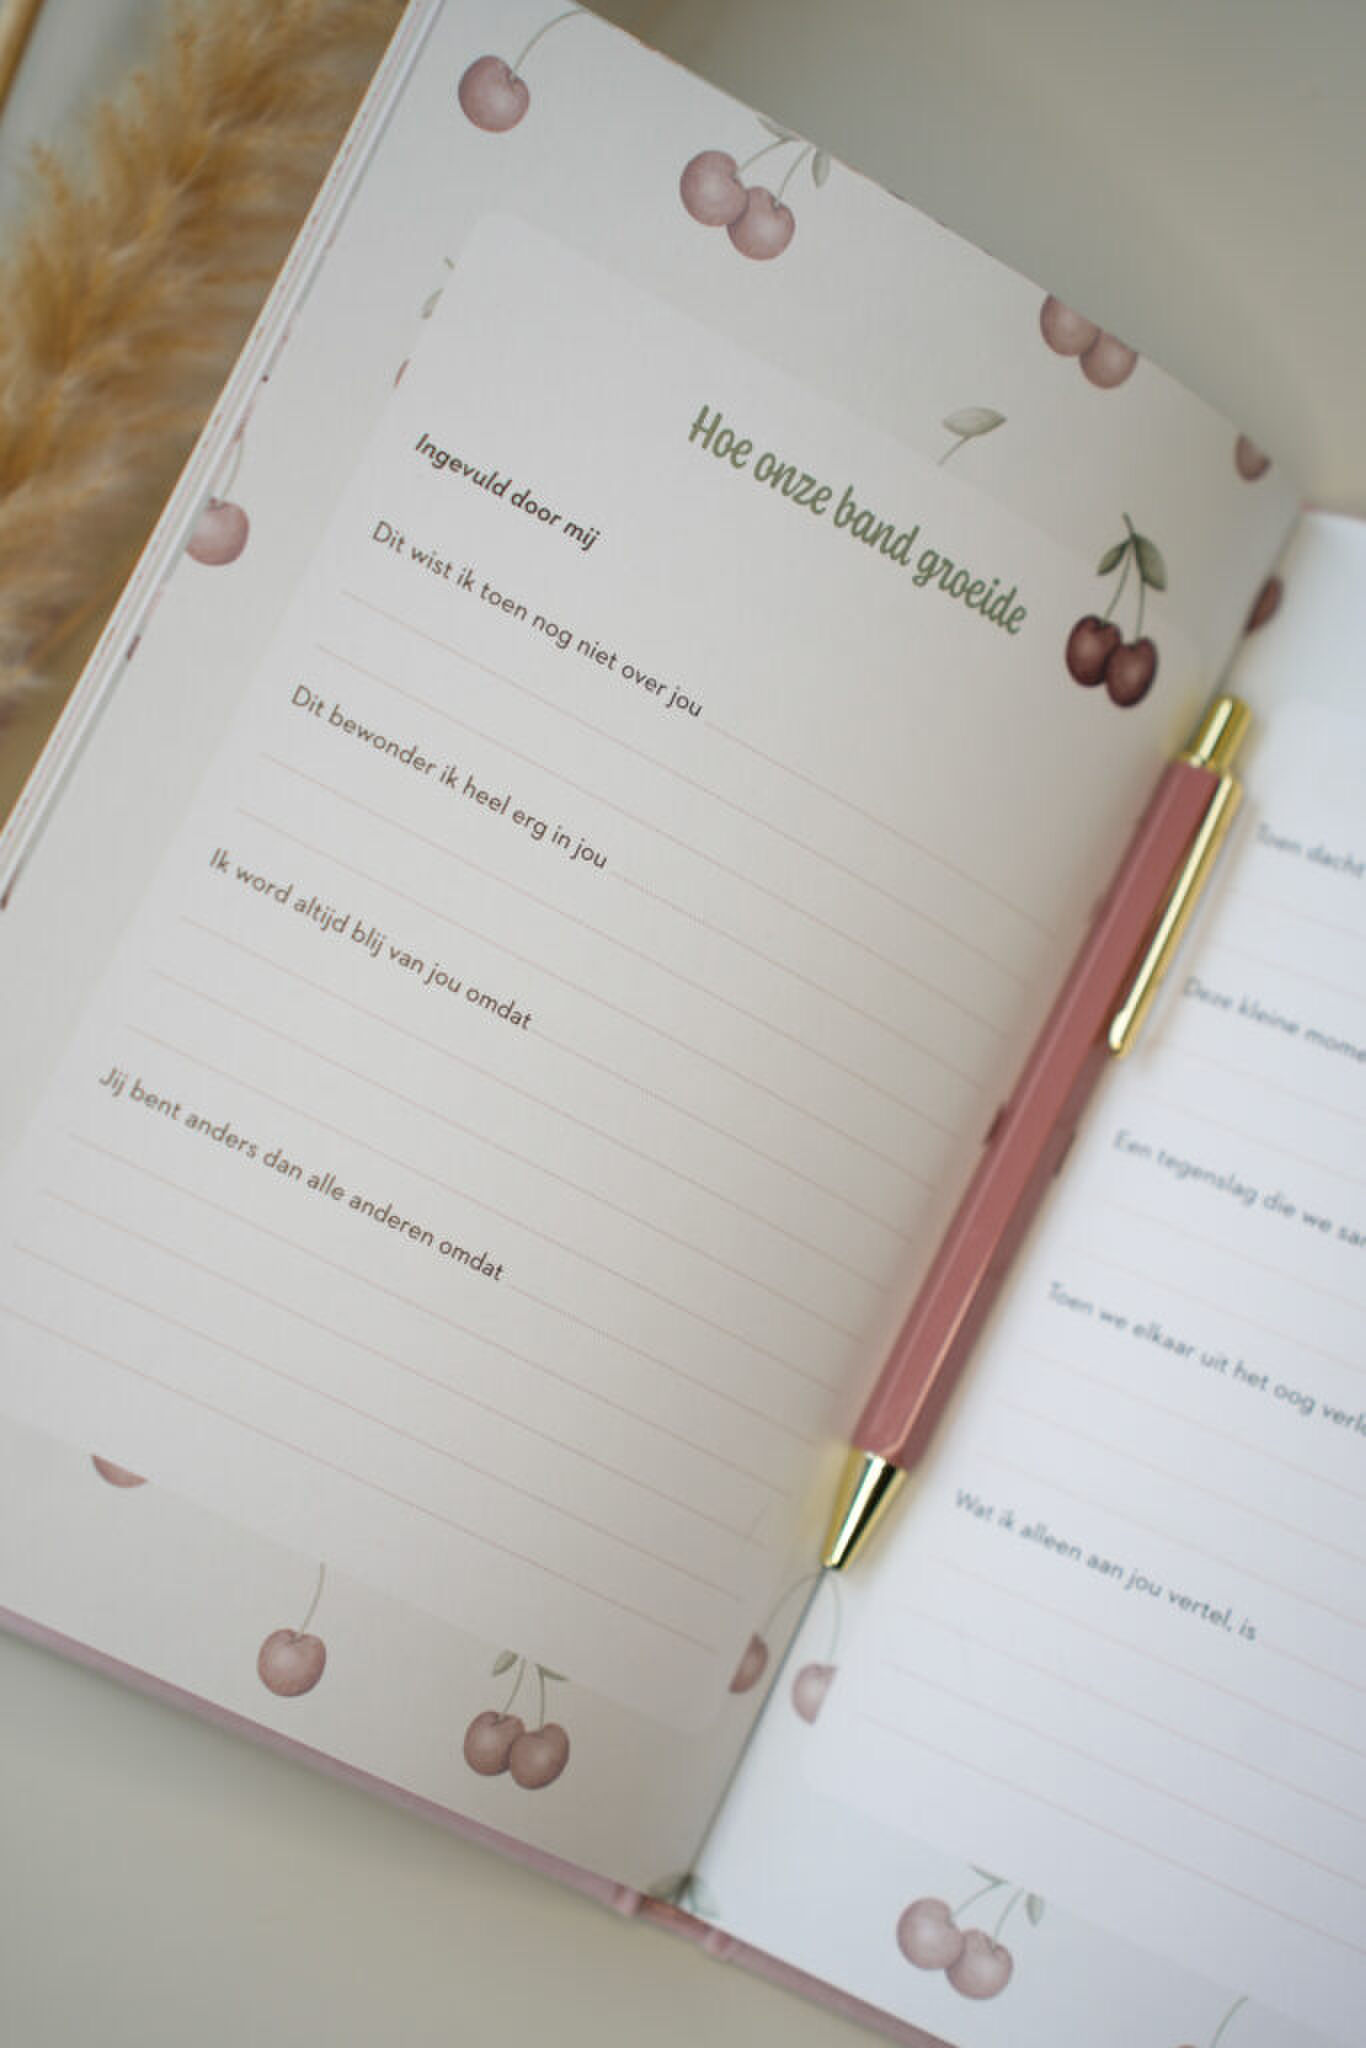 Hoe onze band groeide
Ingevuld door mij
Dit wist ik toen nog niet over jou
Dit bewonder ik heel erg in jou
Ik word altijd blij van jou omdat
Jij bent anders dan alle anderen omdat
Toen dacht
Deze kleine
Een tegenslag die we
Toen we elkaar uit het oog
Wat ik alleen aan jou vertel, is